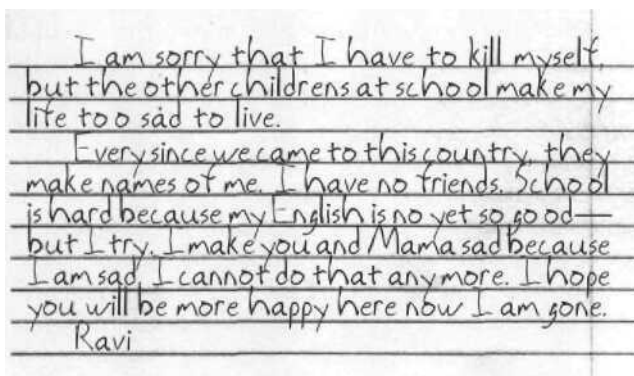 I am sorry that I have to kill myself,
but the other childrens at school make my
life too sad to live.
Every since we came to this country, they
make names of me. I have no friends. School
is hard because my English is no yet so good—
but I try. I make you and Mama sad because
I am sad. I cannot do that any more. I hope
you will be more happy here now I am gone.
Ravi